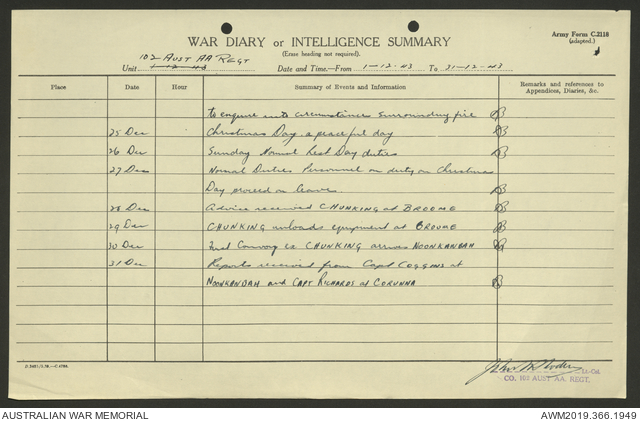 WAR DIARY or INTELLIGENCE SUMMARY
(Erase heading not required).
Army Form C.2118
(adapted.)
102 AUST AA REGT
Unit 1-12-43 Date and Time.—From 1-12-43 To 31-12-43
Place Date Hour Summary of Events and Information Remarks and references to Appendices, Diaries, &c.
to enquire into circumstances surrounding fire
25 Dec Christmas Day. a peaceful day
26 Dec Sunday Normal Rest Day duties
27 Dec Normal Duties Personnel on duty on Christmas
Day proceed on leave.
28 Dec Advice received CHUNKING at BROOME
29 Dec CHUNKING unloads equipment at BROOME
30 Dec First Convoy ex CHUNKING arrives NOONKANBAH
31 Dec Reports received from Capt COGGINS at
NOONKANBAH and CAPT RICHARDS at CORUNNA
Lt-Col.
CO. 102 AUST AA. REGT.
AUSTRALIAN WAR MEMORIAL AWM2019.366.1949